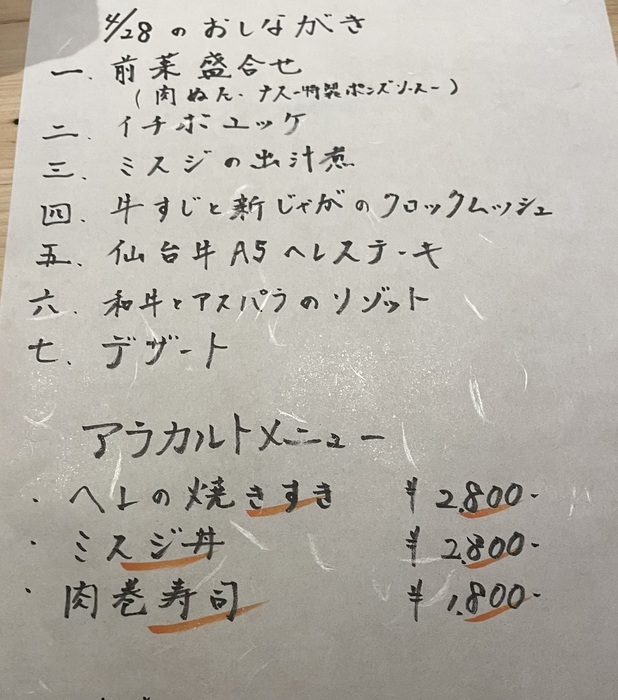 4/28 のおしながき
一. 前菜盛合せ
(肉ぬた・ナス-特製ポンズソース-)
二. イチボユッケ
三. ミスジの出汁煮
四. 牛すじと新じゃがのクロックムッシュ
五. 仙台牛A5ヘレステーキ
六. 和牛とアスパラのリゾット
七. デザート
アラカルトメニュー
・ヘレの焼きすき ¥2,800-
・ミスジ丼 ¥2,800-
・肉巻寿司 ¥1,800-